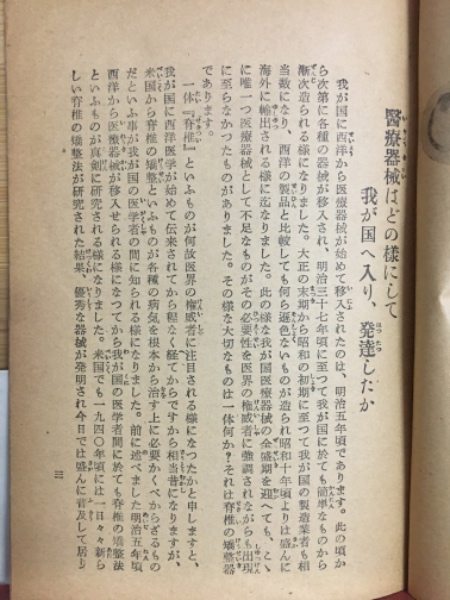 醫療器械はどの様にして
我が国へ入り、発達したか
我が国に西洋から医療器械が始めて移入されたのは、明治五年頃であります。此の頃か
ら次第に各種の器械が移入され、明治三十七年頃に至つて我が国に於ても簡単なものから
漸次造られる様になりました。大正の末期から昭和の初期に至つて我が国の製造業者も相
当数になり、西洋の製品と比較しても何ら遜色ないものが造られ昭和十年頃よりは盛んに
海外に輸出される様に迄なりました。此の様な我が国医療器械の全盛期を迎へても、こゝ
に唯一つ医療器械として不足なものがその必要性を医界の権威者に強調されながらも出現
に至らなかつたものがありました。その様な大切なものは一体何か？それは脊椎の矯整器
であります。
一体『脊椎』といふものが何故医界の権威者に注目される様になつたかと申しますと、
我が国に西洋医学が始めて伝来されてから程なく経てからですから相当昔になりますが、
米国から脊椎の矯整といふものが各種の病気を根本から治す上に必要かくべからざるもの
だといふ事が我が国の医学者の間に知られる様になりました。前に述べました明治五年頃
西洋から医療器械が移入せられる様になつてから我が国の医学者間に於ても脊椎の矯整法
といふものが真剣に研究される様になりました。米国でも一九四〇年頃には一日々々新ら
しい脊椎の矯整法が研究された結果、優秀な器械が発明され今日では盛んに普及して居り
三